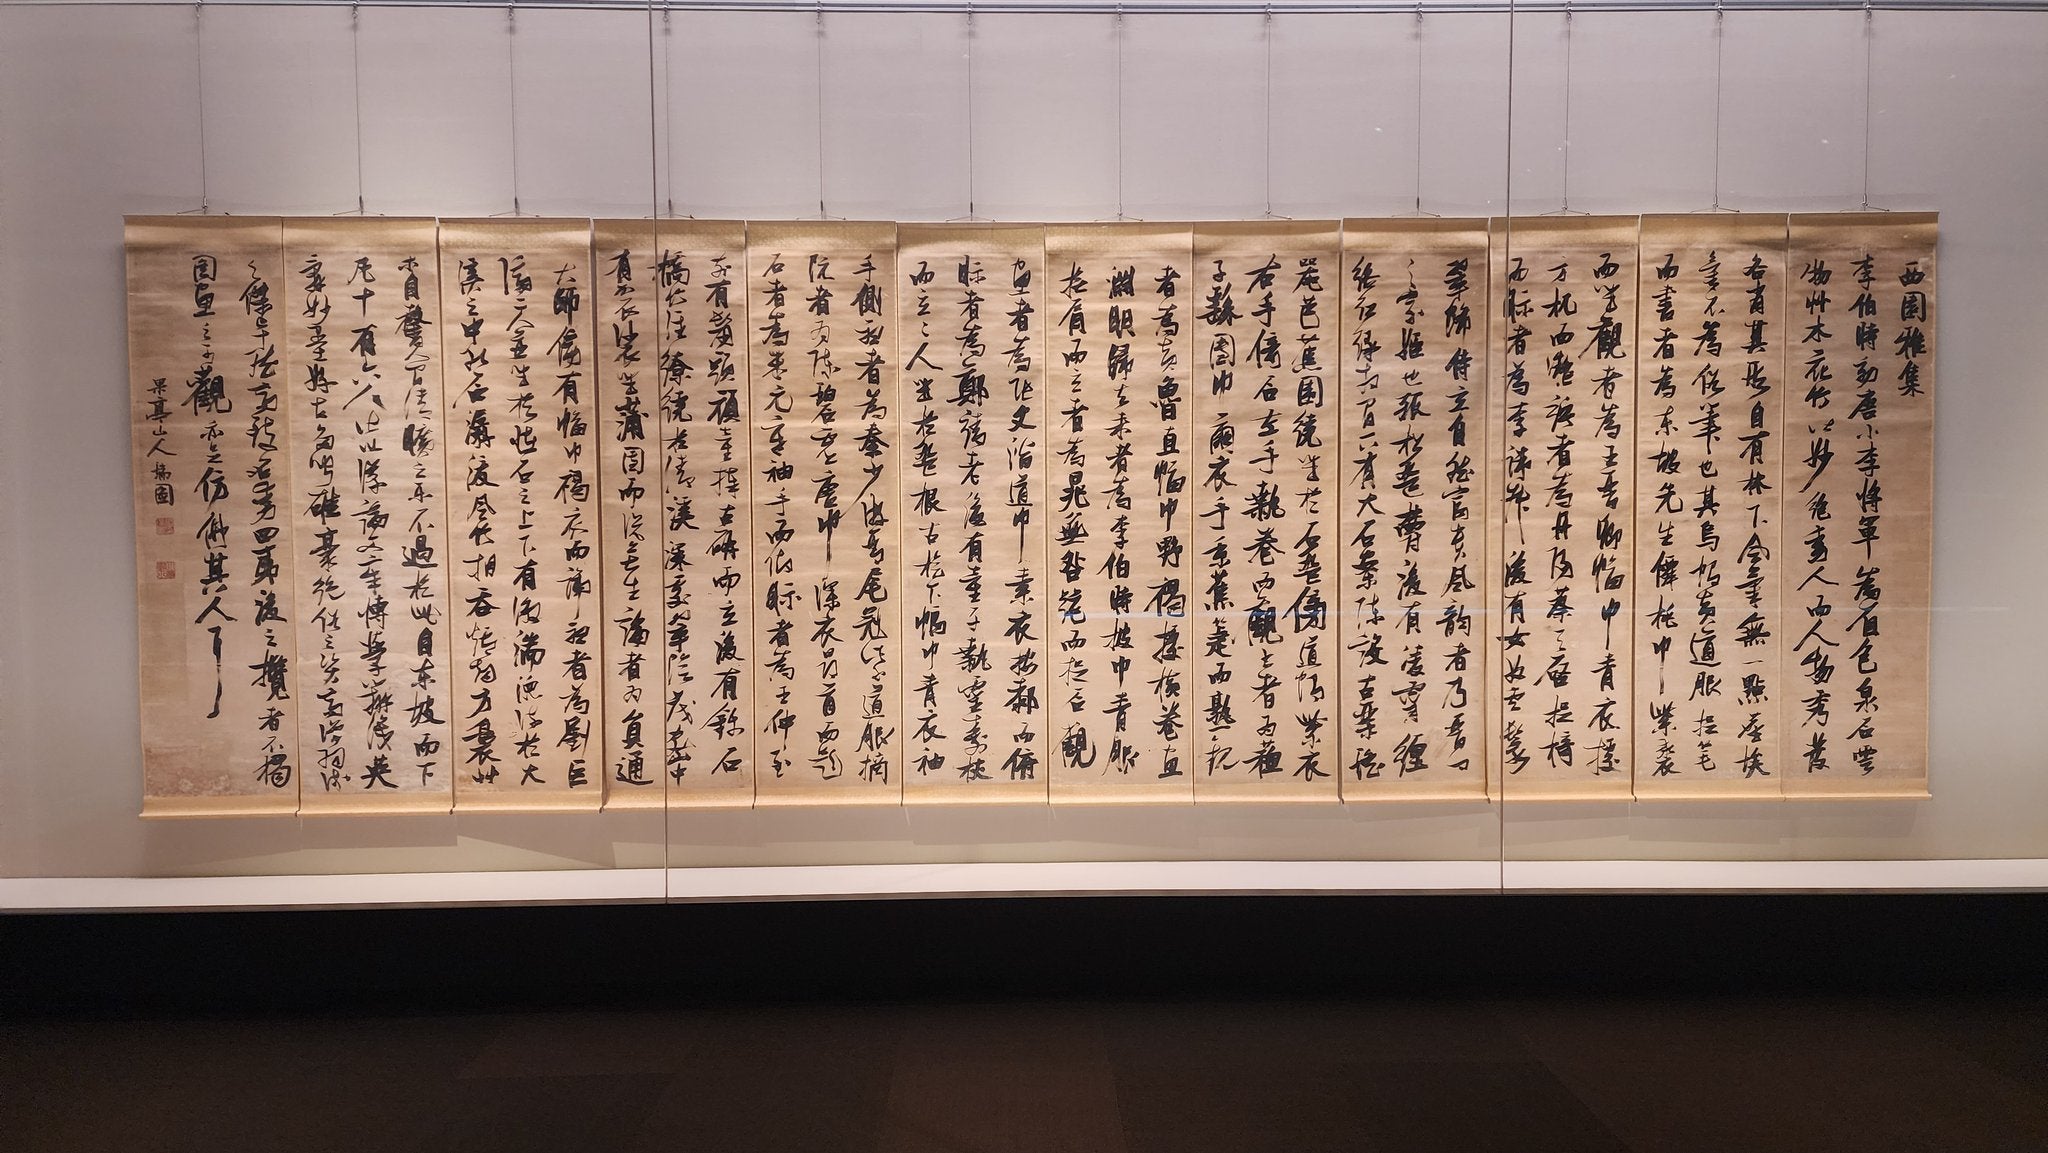 西園雅集
李伯時効唐小李將軍為着色泉石雲
物艸木花竹皆妙絕動人而人物秀發
各肖其形自有林下風味無一點塵埃
氣不為俗筆也其烏帽黃道服捉筆
而書者為東坡先生僊桃巾紫裘
而坐觀者為王晉卿幅巾青衣據
方机而凝竚者為丹陽蔡天啓捉椅
而眎者為李端叔後有女奴雲鬟
翠飾侍立自然富貴風韵者乃晉卿
之家姬也孤松盤欝後有凌霄纏
絡紅綠相間下有大石案陳設古器瑤
琴芭蕉圍繞坐於石盤傍道帽紫衣
右手倚石左手執卷而觀書者為蘇
子繇團巾繭衣手秉蕉箑而熟視
者為黃魯直幅巾野褐據橫卷畫
淵明歸去來者為李伯時披巾青服
撫肩而立者為晁無咎跪而捉石觀
畫者為張文潛道巾素衣按膝而俯
眎者為鄭靖老後有童子執靈壽杖
而立二人坐於盤根古檜下幅巾青衣袖
手側聽者為秦少游琴尾冠紫道服摘
阮者為陳碧虛唐巾深衣昂首而題
石者為米元章袖手而仰眎者為王仲至
前有鬅頭頑童捧古硯而立後有錦石
橋竹徑繚繞於清溪深處翠陰茂密中
有袈裟坐蒲團而說無生論者為圓通
大師傍有幅巾褐衣而諦聽者為劉巨
濟二人並坐於怪石之上下有激湍潨流於大
溪之中水石潺湲風竹相吞爐烟方裊艸
木自馨人間清曠之樂不過於此自東坡而下
凡十有六人以文章議論博學辨識英
辭妙墨好古多聞雄豪絕俗之資高僧羽流
之傑卓然高致名動四夷後之攬者不獨
圖畫之可觀亦足仿佛其人耳
果亭山人瑞圖